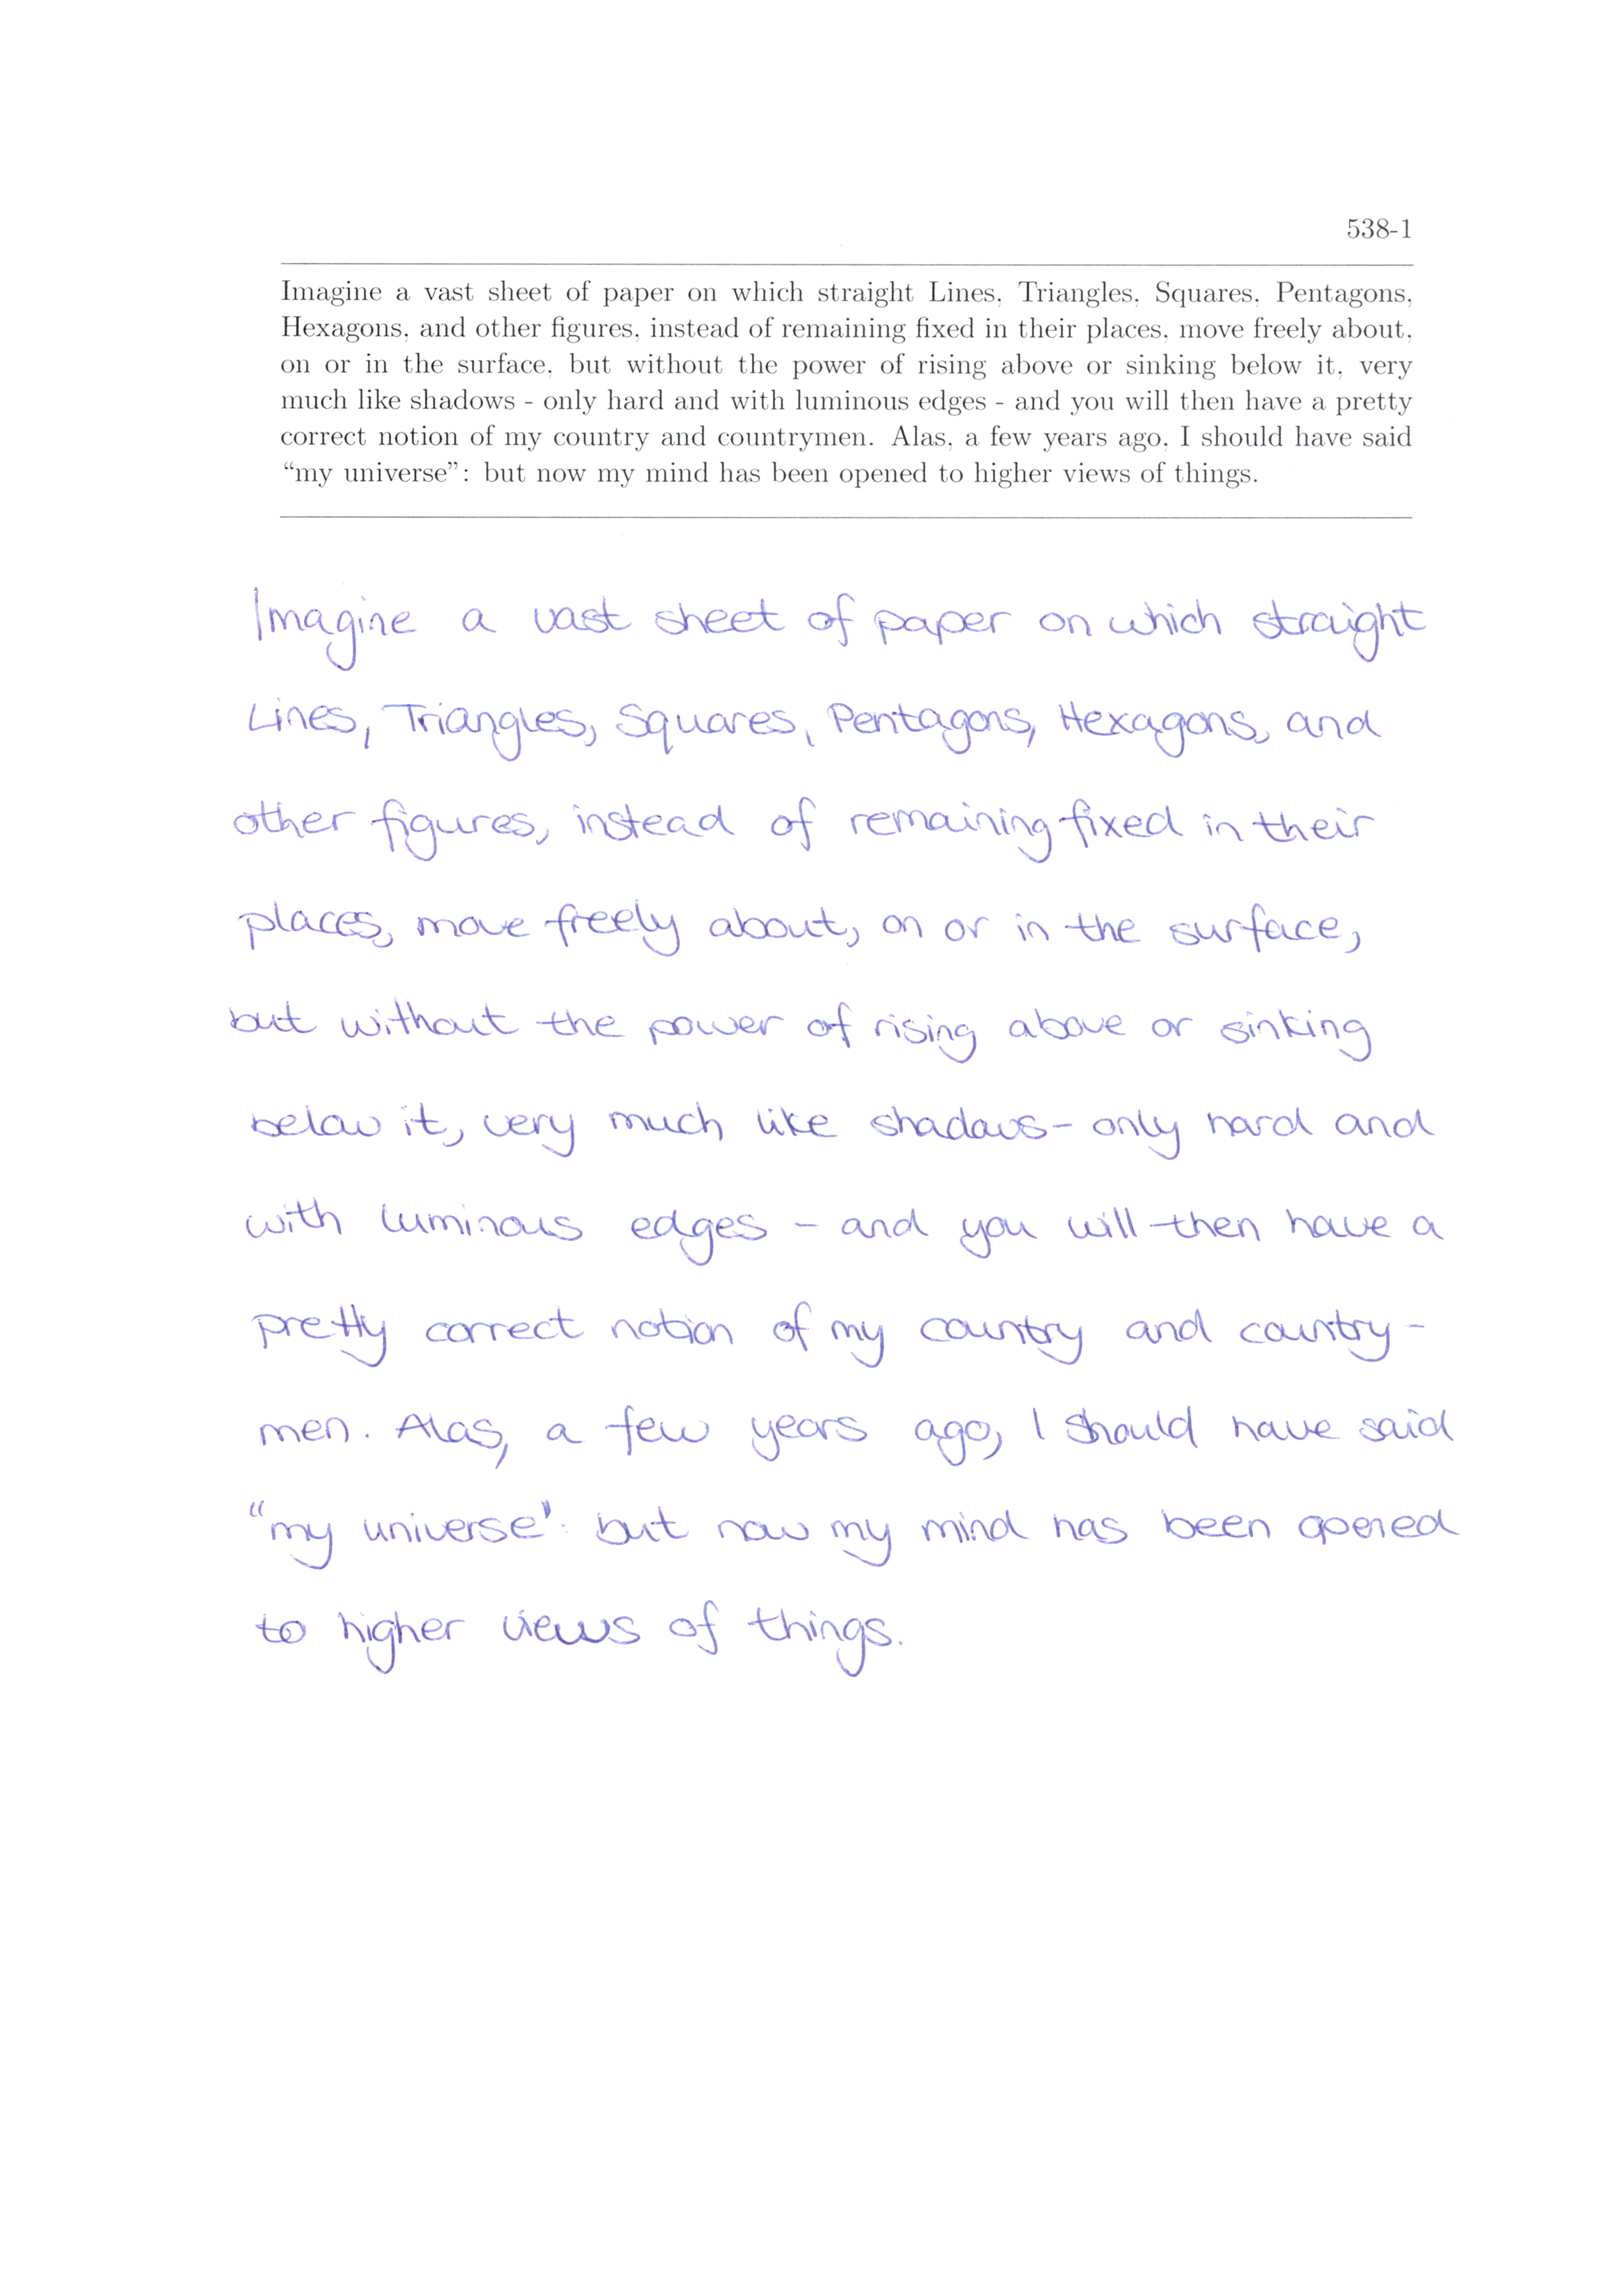 538-1
Imagine a vast sheet of paper on which straight Lines, Triangles, Squares, Pentagons,
Hexagons, and other figures, instead of remaining fixed in their places, move freely about,
on or in the surface, but without the power of rising above or sinking below it, very
much like shadows - only hard and with luminous edges - and you will then have a pretty
correct notion of my country and countrymen. Alas, a few years ago, I should have said
“my universe”: but now my mind has been opened to higher views of things.
Imagine a vast sheet of paper on which straight
Lines, Triangles, Squares, Pentagons, Hexagons, and
other figures, instead of remaining fixed in their
places, move freely about, on or in the surface,
but without the power of rising above or sinking
below it, very much like shadows - only hard and
with luminous edges - and you will then have a
pretty correct notion of my country and country-
men. Alas, a few years ago, I should have said
“my universe”: but now my mind has been opened
to higher views of things.